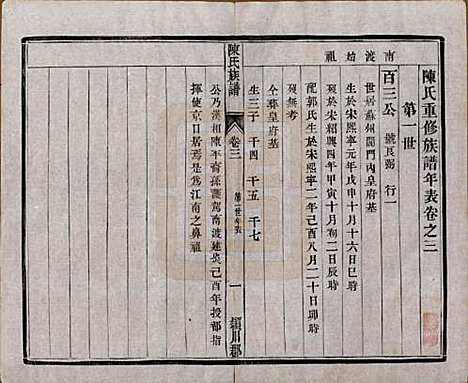 陳氏重修族譜年表卷之三
第一世
南渡始祖
百三公 號良弼 行一
世居蘇州閶門內皇府基
生於宋熙寧元年戊申十月十六日巳時
歿於宋紹興四年甲寅十月初二日辰時
配郭氏生於宋熙寧二年己酉八月二十日卯時
歿無考
仝葬皇府基
生三子 千四 千五 千七
公乃漢相陳平裔孫護駕南渡建炎己酉年授都指
揮使京口居焉是為江南之鼻祖
陳氏族譜
卷三
第一世年表
一
潁川郡